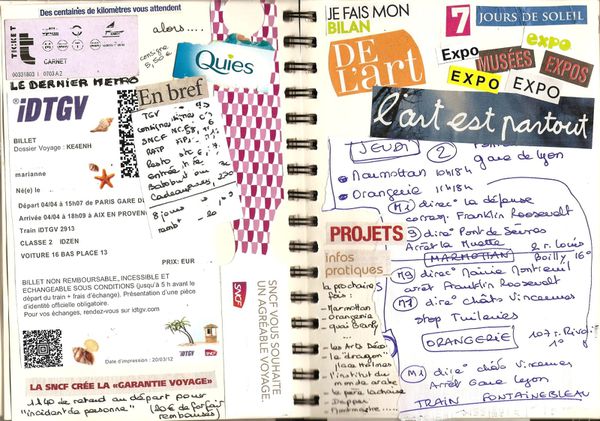 Des centaines de kilomètres vous attendent
TICKET
CARNET
00331803 I 0703 A2
LE DERNIER METRO
alors....
consigne
9,50€
Quies
iDTGV
BILLET
Dossier Voyage : KE4ENH
marianne
Né(e) le
Départ 04/04 à 15h07 de PARIS GARE D
Arrivée 04/04 à 18h09 à AIX EN PROVEN
Train iDTGV 2913
CLASSE 2 IDZEN
VOITURE 16 BAS PLACE 13
PRIX: EUR
BILLET NON REMBOURSABLE, INCESSIBLE ET
ECHANGEABLE SOUS CONDITIONS (jusqu'à 5 h avant le
départ du train + frais d'échange). Présentation d'une pièce
d'identité officielle obligatoire.
Pour vos échanges, rendez-vous sur idtgv.com
iDTGV
SNCF
Date d'impression : 20/03/12
En bref
TGV
SNCF
RATP
Resto
entrée
8 jours
LA SNCF CRÉE LA «GARANTIE VOYAGE»
1h40 de retard au départ pour
"incident de personne"
(20€ de forfait
remboursés)
SNCF
SNCF VOUS SOUHAITE
UN AGRÉABLE VOYAGE.
JE FAIS MON
BILAN
DE
L'art
7 JOURS DE SOLEIL
Expo
MUSÉES
expo
EXPOS
EXPO
EXPO
l'art est partout
JEUDI
2
gare de Lyon
Marmottan 10h18h
Orangerie 11h18h
M1 direc° la défense
corresp. Franklin Roosevelt
9 direc° Pont de Sèvres
Arrêt La Muette
MARMOTTAN
2 r. Louis
Boilly 16°
M9 direc° Mairie Montreuil
arrêt Franklin Roosevelt
M1 direc° chât Vincennes
stop Tuileries
ORANGERIE
107 r. Rivoli
1°
M1 direc° chât Vincennes
Arrêt Gare Lyon
TRAIN FONTAINEBLEAU
PROJETS
infos
pratiques
la prochaine
fois :
- Marmottan
- Orangerie
- quai Branly
- les Arts Déco
- le "dragon"
- l'institut du
monde arabe
- le père lachaise
- Dapper
- Montmartre...